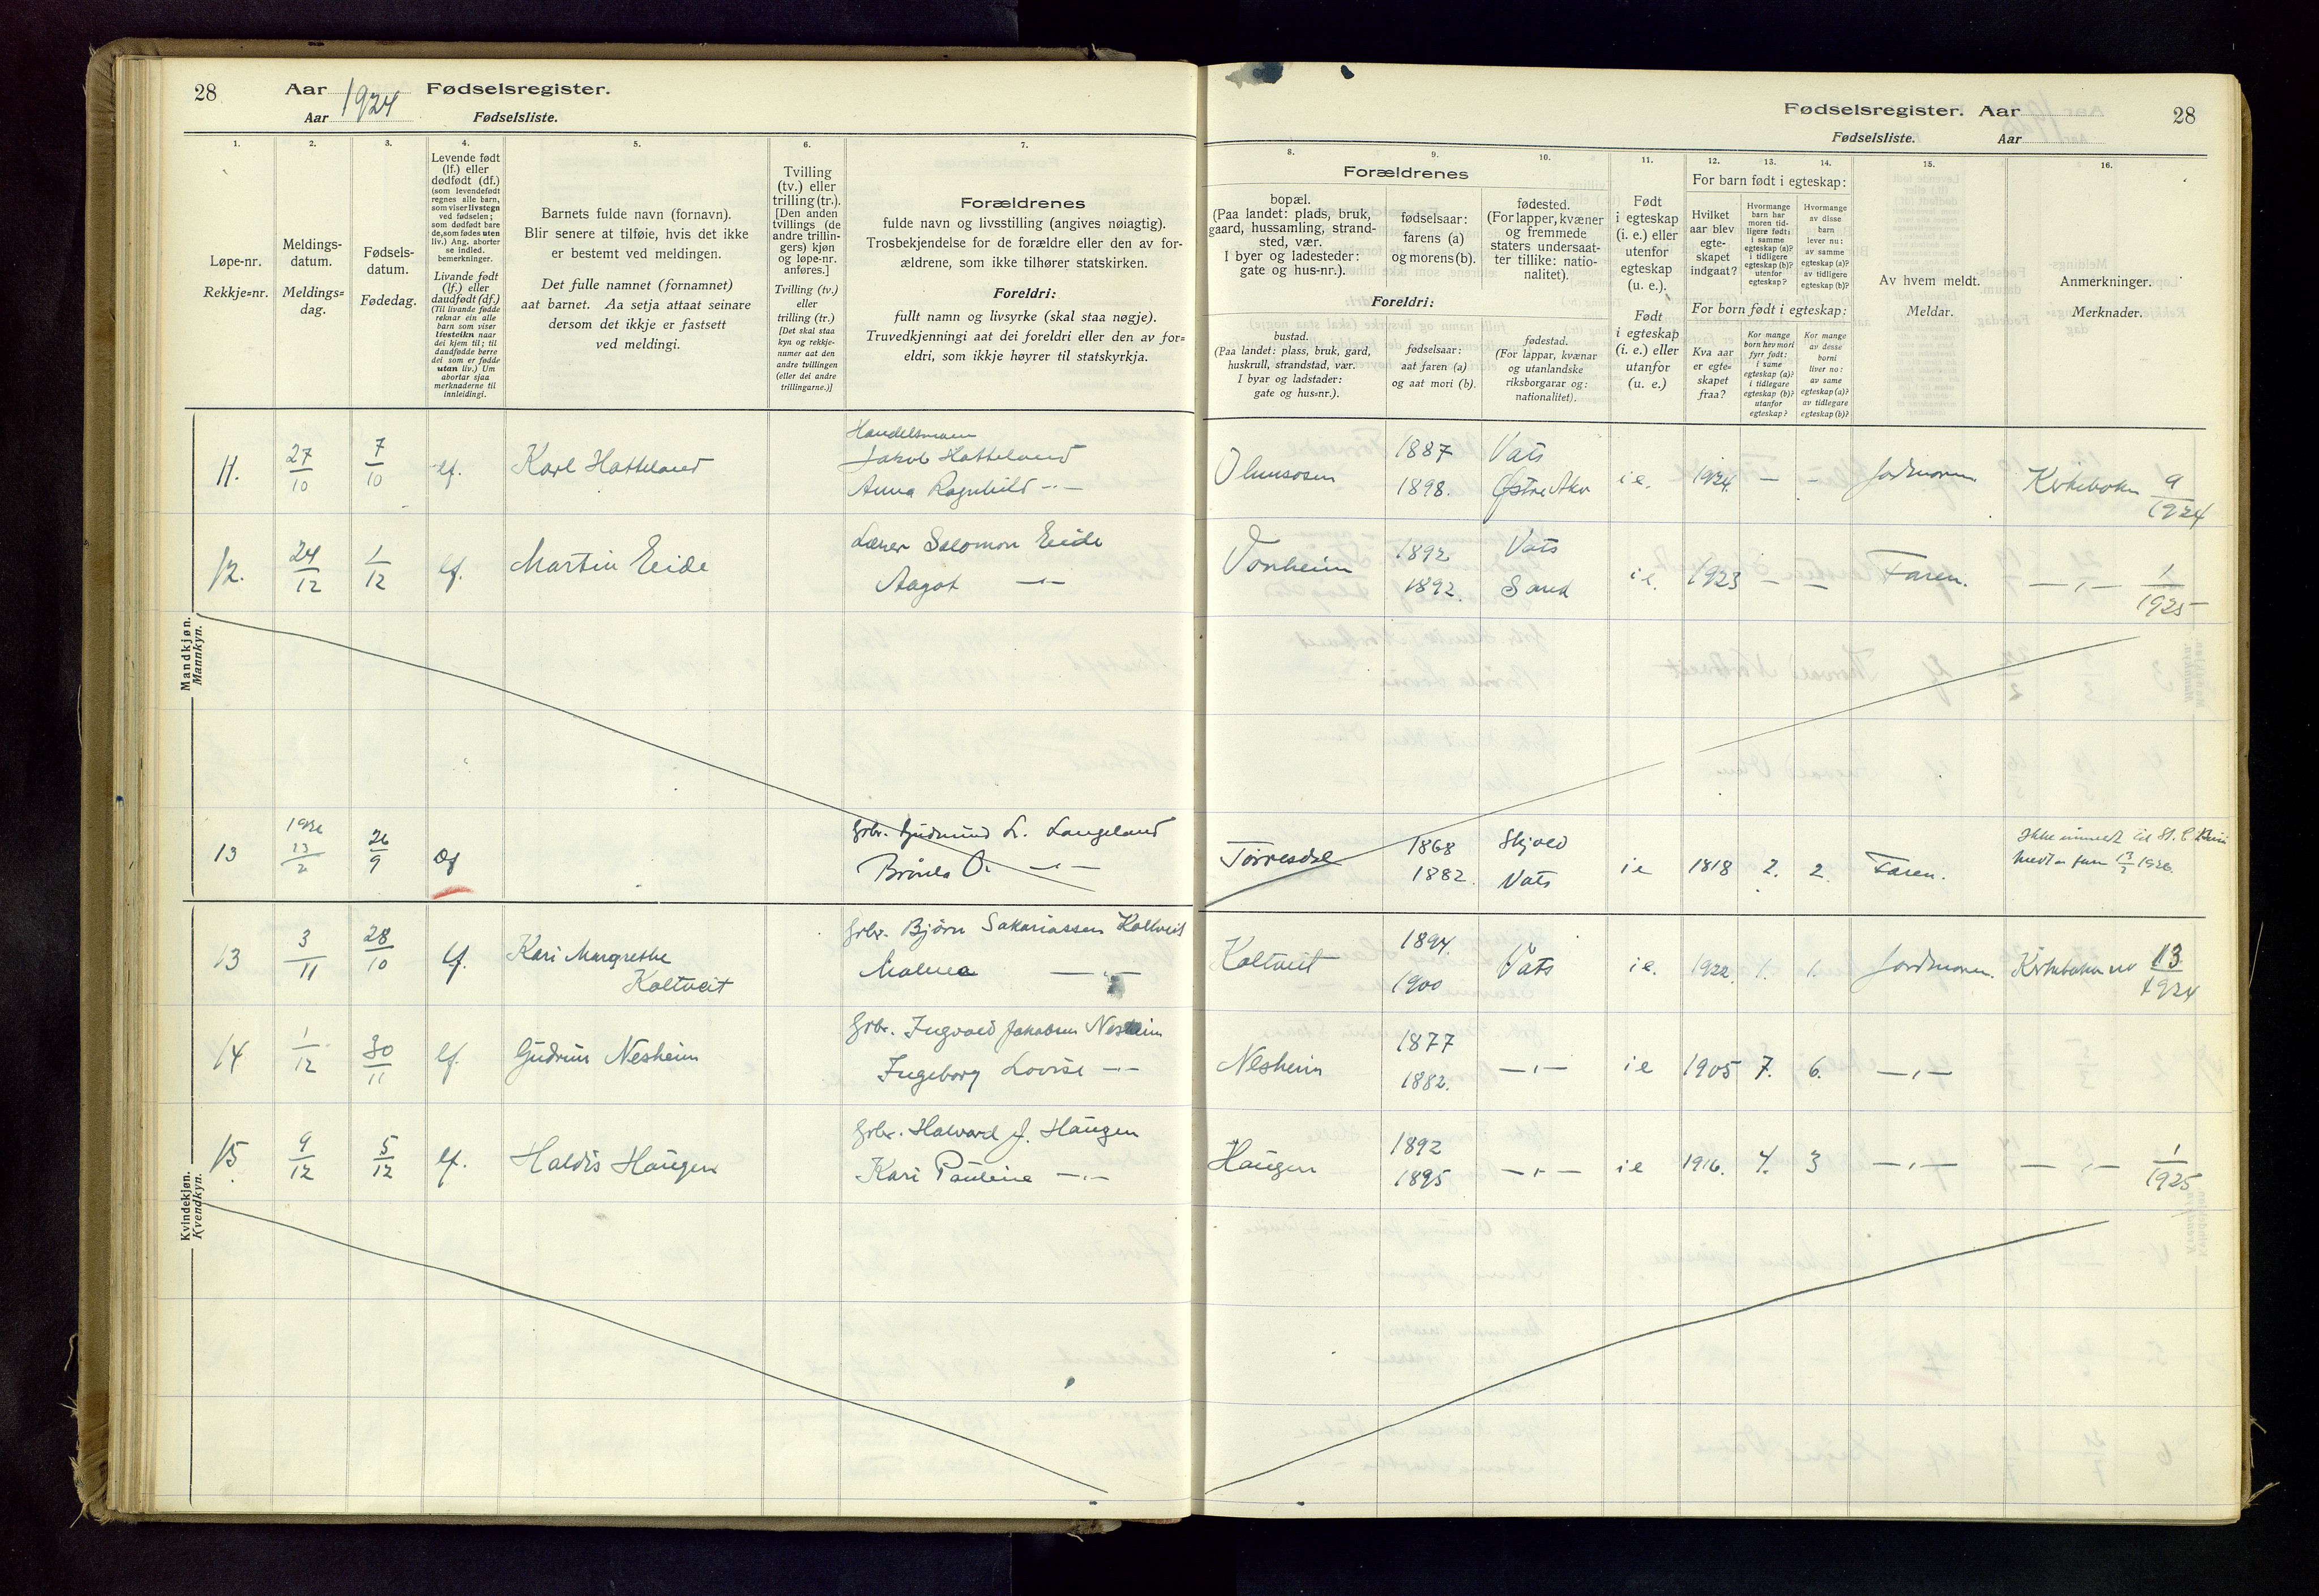 28
Aar 1924 Fødselsregister.
Aar Fødselsliste.
1.
Løpe-nr.
Rekkje=nr.
2.
Meldings-
datum.
Meldings=
dag.
3.
Fødsels-
datum.
Fødedag.
4.
Levende født
(lf.) eller
dødfødt (df.)
(som levendefødt
regnes alle barn,
som viser livstegn
ved fødselen;
som dødfødt bare
de, som fødes uten
liv.) Ang. aborter
se indled.
bemerkninger.
Livande født
(lf.) eller
daudfødt (df.)
(Til livande fødde
reknar ein alle
barn som viser
livsteikn naar
dei kjem til; til
daudfødde berre
dei som er fødde
utan liv.) Um
abortar sjaa
merknaderne til
innleidingi.
5.
Barnets fulde navn (fornavn).
Blir senere at tilføie, hvis det ikke
er bestemt ved meldingen.
Det fulle namnet (fornamnet)
aat barnet. Aa setja attaat seinare
dersom det ikkje er fastsett
ved meldingi.
6.
Tvilling
(tv.) eller
trilling (tr.).
[Den anden
tvillings (de
andre trillin-
gers) kjøn
og løpe-nr.
anføres.]
Tvilling (tv.)
eller
trilling (tr.)
[Det skal staa
kyn og rekkje-
numer aat den
andre tvillingen
(eller dei andre
trillingarne.)]
7.
Forældrenes
fulde navn og livsstilling (angives nøiagtig).
Trosbekjendelse for de forældre eller den av for-
ældrene, som ikke tilhører statskirken.
Foreldri:
fullt namn og livsyrke (skal staa nøgje).
Truvedkjenningi aat dei foreldri eller den av for=
eldri, som ikkje høyrer til statskyrkja.
Mandkjøn.
Mannkyn.
11. 27/10 7/10 lf. Karl Hatteland Handelsmann
Jakob Hatteland
Anna Ragnhild —"—
12. 24/12 1/12 lf. Martin Eide Lærer Salomon Eide
Aagot —"—
13 1926 23/2 26/9 df Grbr. Gudmund L. Langeland
O. —"—
Kvindekjøn.
Kvendkyn.
13 3/11 28/10 lf. Kari Margrethe
Koltveit
Grbr. Bjørn Sakariassen Koltveit
Malena —"—
14 1/12 30/11 lf. Gudrun Nesheim Grbr. Ingvald Jakobsen Nesheim
Ingeborg Lovise —"—
15 9/12 5/12 lf. Haldis Haugen Grbr. Halvard J. Haugen
Kari Pauline —"—
Fødselsregister. Aar
28
Fødselsliste. Aar
Forældrenes
8.
bopæl.
(Paa landet: plads, bruk,
gaard, hussamling, strand-
sted, vær.
I byer og ladesteder:
gate og hus-nr.).
9.
fødselsaar:
farens (a)
og morens (b).
10.
fødested.
(For lapper, kvæner
og fremmede
staters undersaat-
ter tillike: natio-
nalitet).
Foreldri:
bustad.
(Paa landet: plass, bruk, gard,
huskrull, strandstad, vær.
I byar og ladstader:
gate og hus=nr.).
fødselsaar:
aat faren (a)
og aat mori (b).
fødestad.
(For lappar, kvænar
og utanlandske
riksborgarar og:
nationalitet).
11.
Født
i egteskap
(i. e.) eller
utenfor
egteskap
(u. e.).
Født
i egteskap
(i. e.) eller
utanfor
(u. e.)
12. 13. 14.
For barn født i egteskap:
Hvilket
aar blev
egte-
skapet
indgaat?
Hvormange
barn har
moren tid-
ligere født:
i samme
egteskap (a)?
i tidligere
egteskap (b)?
utenfor
egteskap?
Hvormange
av disse
barn
lever nu:
av samme
egteskap (a)?
av tidligere
egteskap (b)?
For born født i egteskap:
Kva aar
er egte=
skapet
fraa?
Kor mange
born hev mori
fyrr født:
i same
egteskap (a)?
i tidlegare
egteskap (b)?
utanfor
egteskap?
Kor mange
av desse
borni
liver no:
av same
egteskap (a)?
av tidlegare
egteskap (b)?
15.
Av hvem meldt.
Meldar.
16.
Anmerkninger.
Merknader.
1887 Vats
1898. i e. 1924. — — Jordmoren Kirkeboken 9/1924
Vonheim 1892 Vats
1892. Sand i e. 1923 — — Faren. —"— 1/1925
Torresdal 1868 Skjold
1882. Vats i e 1818 2. 2. Faren. Ikke til St. C.
1926.
Koltveit 1894. Vats
1900 i e. 1922. 1. 1. Jordmoren. Kirkeboken nr 13/1924
Nesheim 1877
1882. —"— i e 1905 7. 6. —"—
Haugen 1892
1895 —"— i e 1916. 4. 3 —"— —"— 1/1925